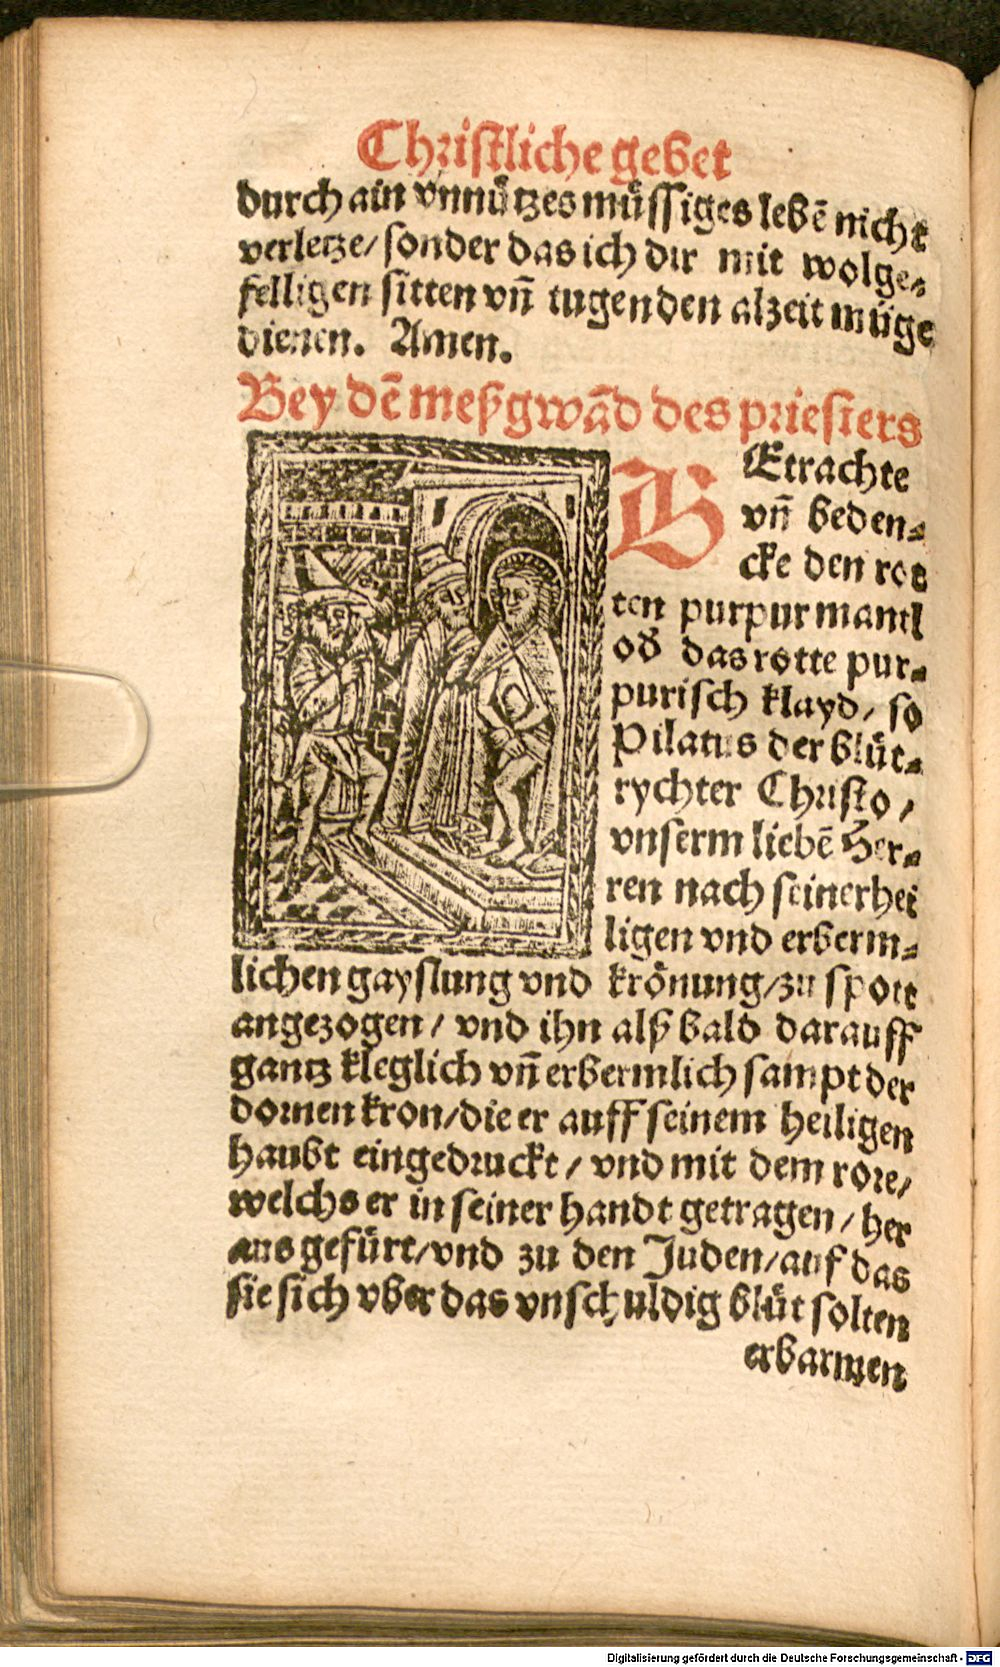 Christliche gebet
durch ain vnnützes müssiges lebē nicht
verletze/ sonder das ich dir mit wolge⸗
felligen sitten vñ tugenden alzeit müge
dienen. Amen.
Bey dē meßgwād des priesters
BEtrachte
vñ beden⸗
cke den rot
ten purpur mantl
od̕ das rotte pur⸗
purisch klayd/ so
Pilatus der blůt⸗
rychter Christo/
vnserm liebē Her⸗
ren nach seiner hei
ligen vnd erberm⸗
lichen gayslung vnd krönung/zu spott
angezogen/ vnd ihn alß bald darauff
gantz kleglich vñ erbermlich sampt der
dornen kron/die er auff seinem heiligen
haubt eingedruckt/ vnd mit dem rore/
welchs er in seiner handt getragen/ her
aus gefürt/vnd zu den Juden/auf das
sie sich vber das vnschuldig blůt solten
erbarmen
Digitalisierung gefördert durch die Deutsche Forschungsgemeinschaft - DFG